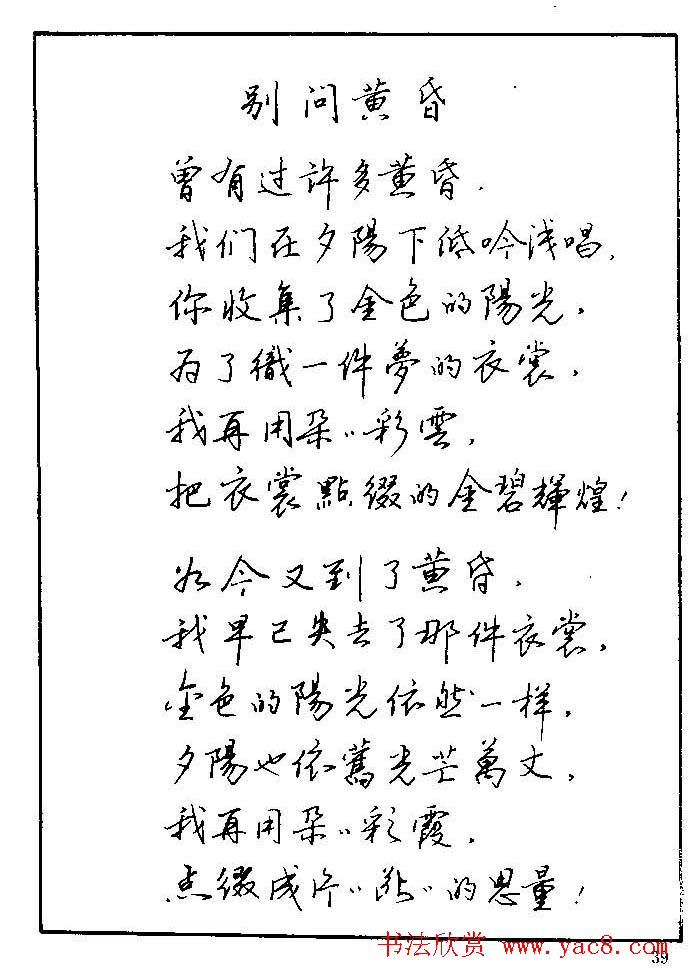 别问黄昏
曾有过许多黄昏，
我们在夕陽下低吟浅唱，
你收集了金色的陽光，
为了織一件夢的衣裳，
我再用朵〃彩雲，
把衣裳點缀的金碧輝煌！
如今又到了黄昏，
我早已失去了那件衣裳，
金色的陽光依然一样，
夕陽也依舊光芒萬丈，
我再用朵〃彩霞，
点缀成片〃〃的思量！
书法欣赏 www.yac8.com
39